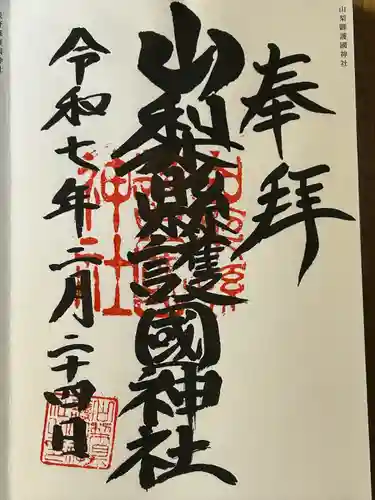 山梨縣護國神社
奉拝
山梨縣護國神社
令和七年二月二十四日